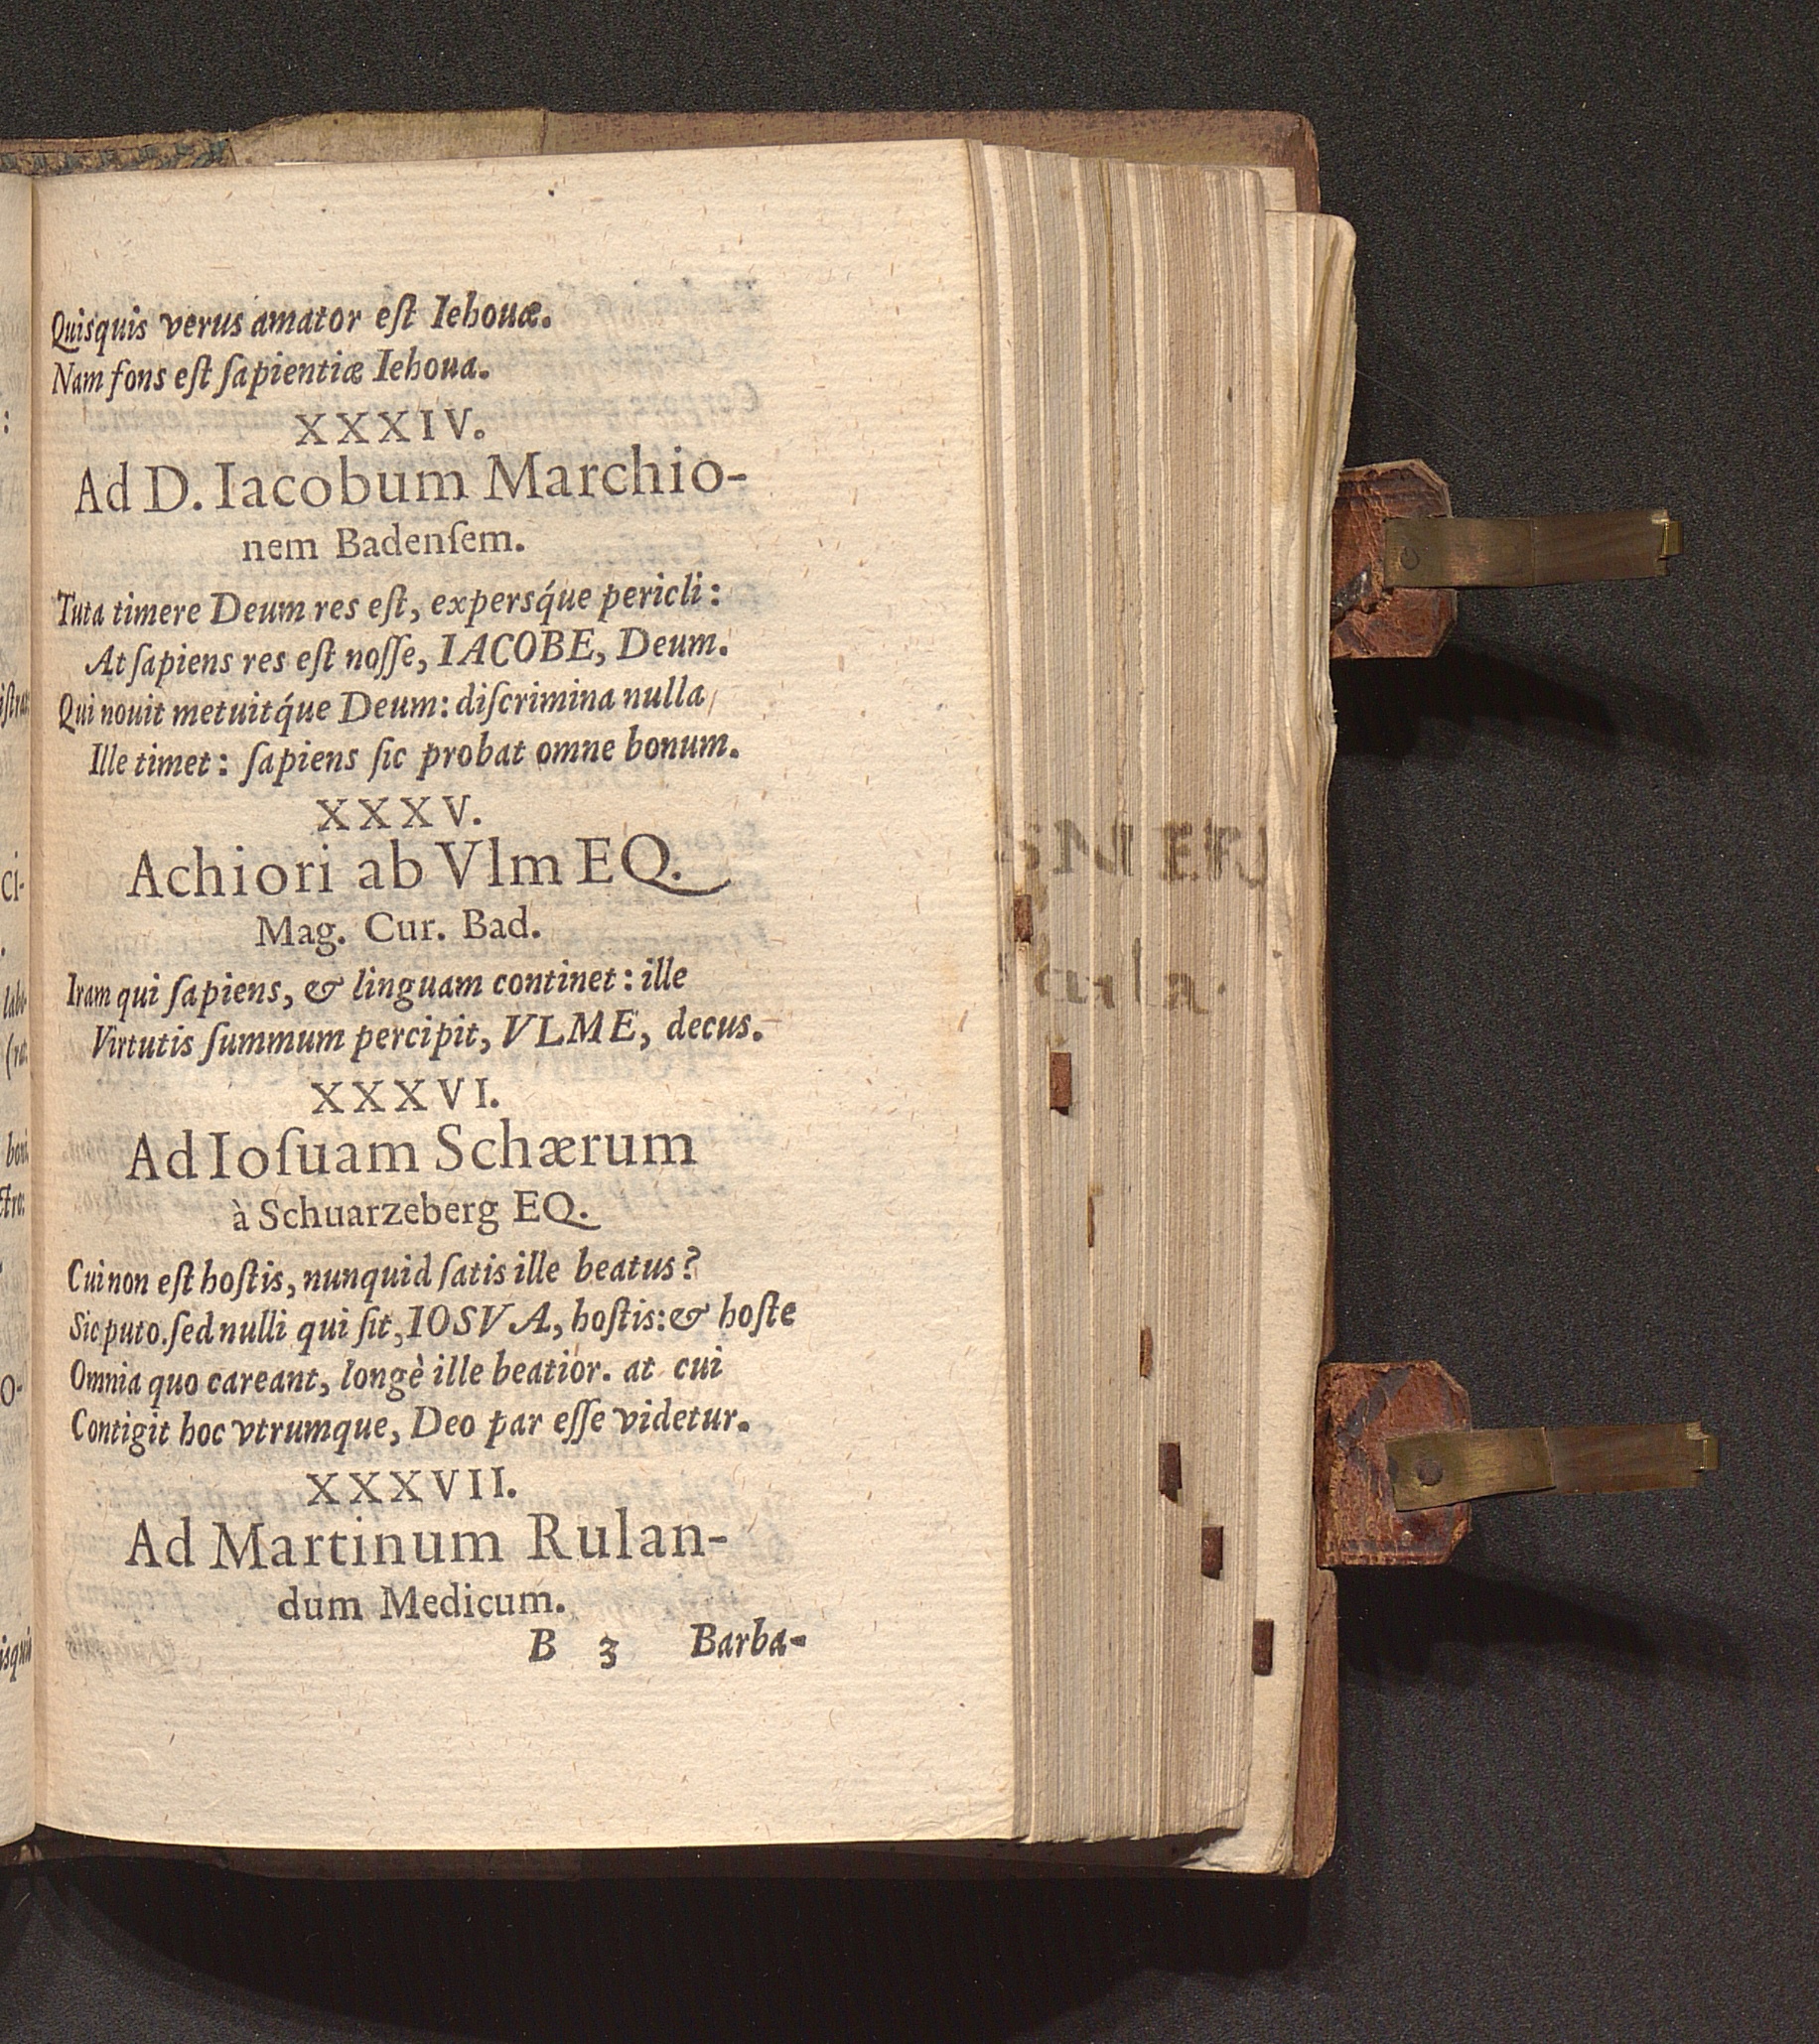 Quisquis verus amator eſt Iehouæ.
Nam fons eſt ſapientiæ Iehoua.
XXXIV.
Ad D. Iacobum Marchio-
nem Badenſem.
Tuta timere Deum res eſt, expersq́ue pericli:
At ſapiens res eſt noſſe, IACOBE, Deum.
Qui nouit metuitq́ue Deum: diſcrimina nulla
Ille timet: ſapiens ſic probat omne bonum.
XXXV.
Achiori ab Vlm EQ.
Mag. Cur. Bad.
Iram qui ſapiens, & linguam continet: ille
Virtutis ſummum percipit, VLME, decus.
XXXVI.
Ad Ioſuam Schærum
à Schuarzeberg EQ.
Cui non eſt hoſtis, nunquid ſatis ille beatus?
Sic puto. ſed nulli qui ſit, IOSVA, hoſtis: & hoſte
Omnia quo careant, longè ille beatior. at cui
Contigit hoc vtrumque, Deo par eſſe videtur.
XXXVII.
Ad Martinum Rulan-
dum Medicum.
B 3 Barba-